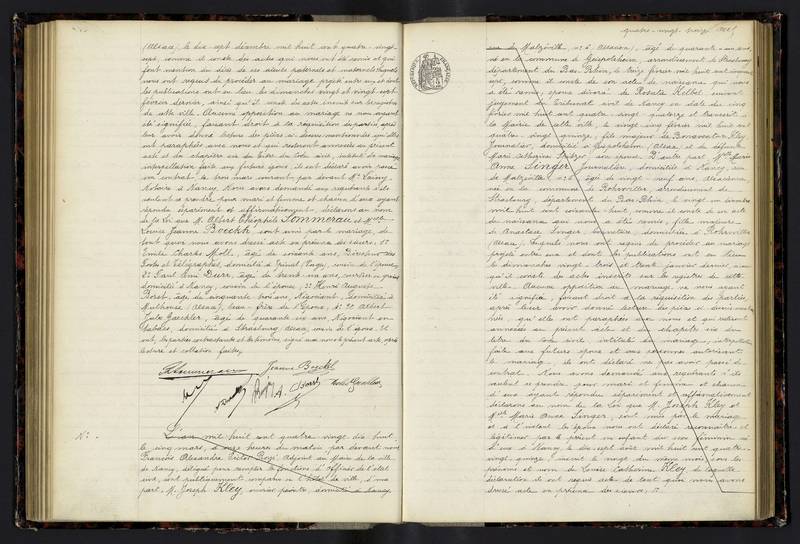 (Alsace), le dix sept décembre mil huit cent quatre-vingt-
sept, comme il conste des actes qui nous ont été remis et qui
font mention du décès de ses aïeuls paternels et maternels, lesquels
nous ont requis de procéder au mariage projeté entre eux et dont
les publications ont eu lieu les dimanches vingt et vingt-sept
février dernier, ainsi qu'il conste des actes inscrits sur les registres
de cette ville. Aucune opposition au mariage ne nous ayant
été signifiée, faisant droit à la réquisition des parties, après
leur avoir donné lecture des pièces ci-dessus mentionnées qu'elles
ont paraphées avec nous et qui resteront annexées au présent
acte et du chapitre six du titre du Code civil, intitulé du mariage,
interpellation faite aux futurs époux, ils ont déclaré avoir passé
un contrat, le trois mars courant par devant Me
Notaire à Nancy. Nous avons demandé aux requérants s'ils
veulent se prendre pour mari et femme et chacun d'eux ayant
répondu séparément et affirmativement, déclarons au nom
de la Loi que M. Albert Théophile Sommerau et Melle
Louise Jeanne Boeckh, sont unis par le mariage, de
tout quoi nous avons dressé acte en présence des sieurs: 1°
Emile Charles Moll, âgé de soixante ans, Directeur des
Postes et Télégraphes, domicilié à Epinal (Vosges),
2° Paul Emile Durr, âgé de trente-un ans,
domicilié à Nancy, cousin de l'épouse; 3° Henri Auguste
âgé de cinquante trois ans, Négociant, domicilié à
Mulhouse (Alsace), beau-frère de l'époux; 4° et Albert
Jules Gaechter, âgé de quarante six ans, Négociant en
Tabacs, domicilié à Strasbourg (Alsace), cousin de l'époux. Et
ont, les parties contractantes et les témoins, signé avec nous le présent acte, après
lecture et collation faites.
Jeanne Boeckh
N°
L'an mil huit cent quatre vingt dix huit
le cinq mars, à onze heures du matin, par devant nous
François Alexandre Victor Adjoint au Maire de la ville
de Nancy, délégué pour remplir les fonctions d'officier de l'état
civil, ont publiquement comparu en l'hôtel de ville, d'une
part, M. Joseph Kley, ouvrier peintre, domicilié à Nancy,
quatre-vingt-treize
rue de Malzéville, n° 6, Alsacien, âgé de quarante-un ans,
né en la commune de Geispolsheim, arrondissement de Strasbourg
département du Bas-Rhin, le février mil huit cent cinquante
sept, comme il conste de son acte de naissance qui nous
a été remis, époux divorcé de Rosalie Kelbel suivant
jugement du Tribunal civil de Nancy en date du cinq
février mil huit cent quatre-vingt quatorze et transcrit à
la Mairie de cette ville, le vingt cinq février mil huit cent
quatre-vingt quinze, fils majeur de Bonaventure Kley
Journalier, domicilié à Geispolsheim (Alsace), et de défunte
Marie Catherine son épouse. D'autre part, Melle Marie
Anne Singer, Journalière, domiciliée à Nancy, rue
de Malzéville, n° 6, âgée de vingt-neuf ans, Alsacienne,
née en la commune de Rohrwiller, arrondissement de
Strasbourg, département du Bas-Rhin, le vingt un
mil huit cent soixante-huit, comme il conste de son acte
de naissance qui nous a été remis, fille majeure
de Anastasie Singer, domiciliée à Rohrwiller
(Alsace). Lesquels nous ont requis de procéder au mariage
projeté entre eux et dont les publications ont eu lieu
les dimanches vingt-trois et trente janvier dernier, ainsi
qu'il conste des actes inscrits sur les registres de cette
ville. Aucune opposition au mariage ne nous ayant
été signifiée, faisant droit à la réquisition des parties,
après leur avoir donné lecture des pièces ci-dessus mention-
nées, qu'elles ont paraphées avec nous et qui resteront
annexées au présent acte et du chapitre six du
titre du Code civil, intitulé du mariage, interpellation
faite aux futurs époux et aux personnes autorisant
le mariage, ils ont déclaré ne pas avoir passé de
contrat. Nous avons demandé aux requérants s'ils
veulent se prendre pour mari et femme et chacun
d'eux ayant répondu séparément et affirmativement
déclarons au nom de la Loi que M. Joseph Kley et
Melle Marie Anne Singer, sont unis par le mariage
et à l'instant les époux nous ont déclaré reconnaître et
légitimer par le présent un enfant du sexe féminin né
d'eux à Nancy le dix sept août mil huit cent quatre-
vingt quinze, inscrit le vingt du même mois sous les
prénoms et nom de Louise Catherine Kley, de laquelle
déclaration ils ont requis acte, de tout quoi nous avons
dressé acte en présence des sieurs: 1°